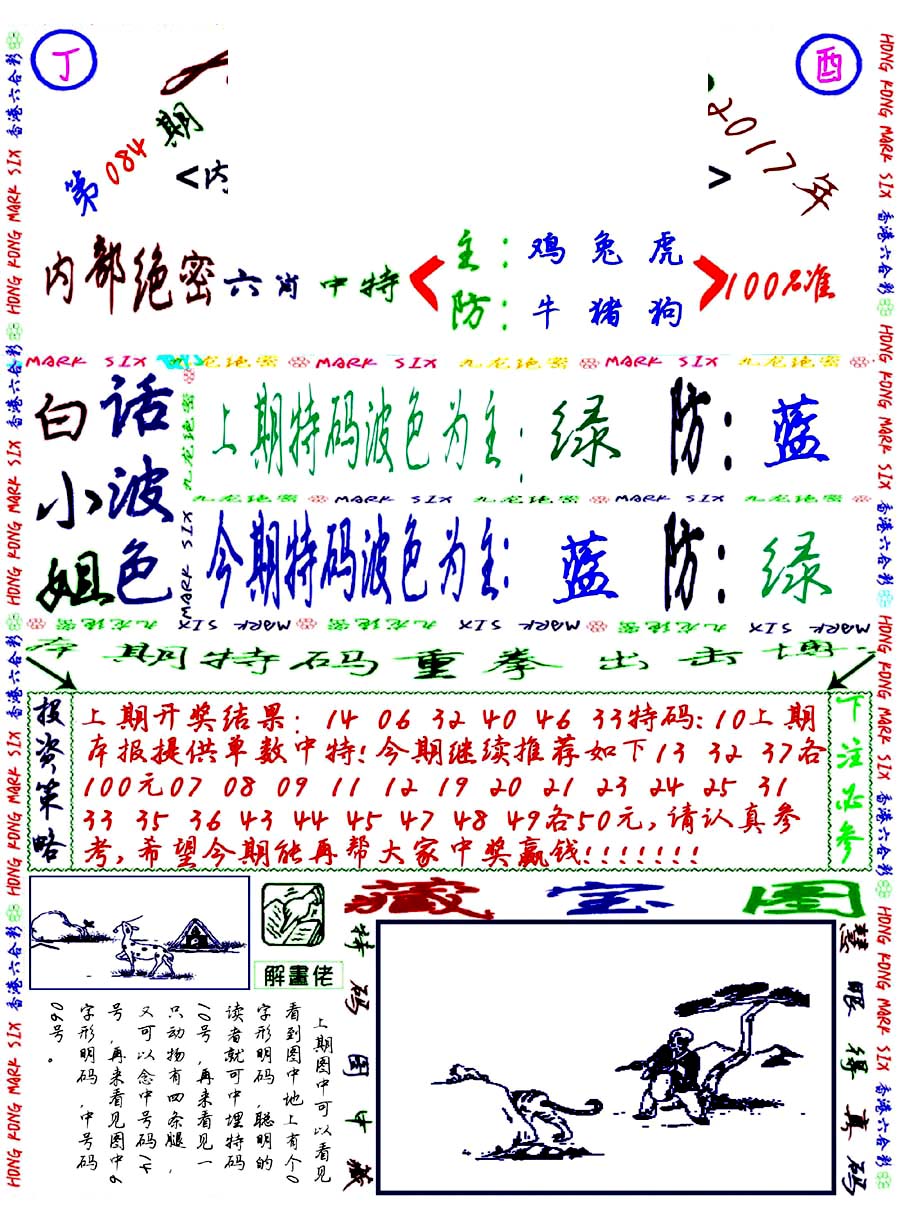 丁
酉
第084期
2017年
<内
>
内部绝密六肖中特
主：鸡 兔 虎
防：牛 猪 狗
100%准
MARK SIX 九龙绝密 MARK SIX 九龙绝密 MARK SIX 九龙绝密
白话小波姐色
上期特码波色为主：绿 防：蓝
九龙绝密 MARK SIX 九龙绝密 MARK SIX 九龙绝密
今期特码波色为主：蓝 防：绿
九龙绝密 MARK SIX
九龙绝密 MARK SIX 九龙绝密 MARK SIX 九龙绝密 MARK SIX
期特码重拳出击博
投资策略
上期开奖结果：14 06 32 40 46 33特码：10上期
本报提供单数中特！今期继续推荐如下13 32 37各
100元07 08 09 11 12 19 20 21 23 24 25 31
33 35 36 43 44 45 47 48 49各50元，请认真参
考，希望今期能再帮大家中奖赢钱！！！！！！！
下注必参
藏宝图
解畫佬
特码图中藏
慧眼得真码
上期图中可以看见
看到图中地上有个0
字形明码，聪明的
读者就可中埋特码
10号，再来看见一
只动物有四条腿，
又可以念中号码14
号，再来看见图中6
字形明码，中号码
06号。
HONG KONG MARK SIX 香港六合彩 HONG KONG MARK SIX 香港六合彩 HONG KONG MARK SIX 香港六合彩 HONG KONG MARK SIX 香港六合彩
HONG KONG MARK SIX 香港六合彩 HONG KONG MARK SIX 香港六合彩 HONG KONG MARK SIX 香港六合彩 HONG KONG MARK SIX 香港六合彩